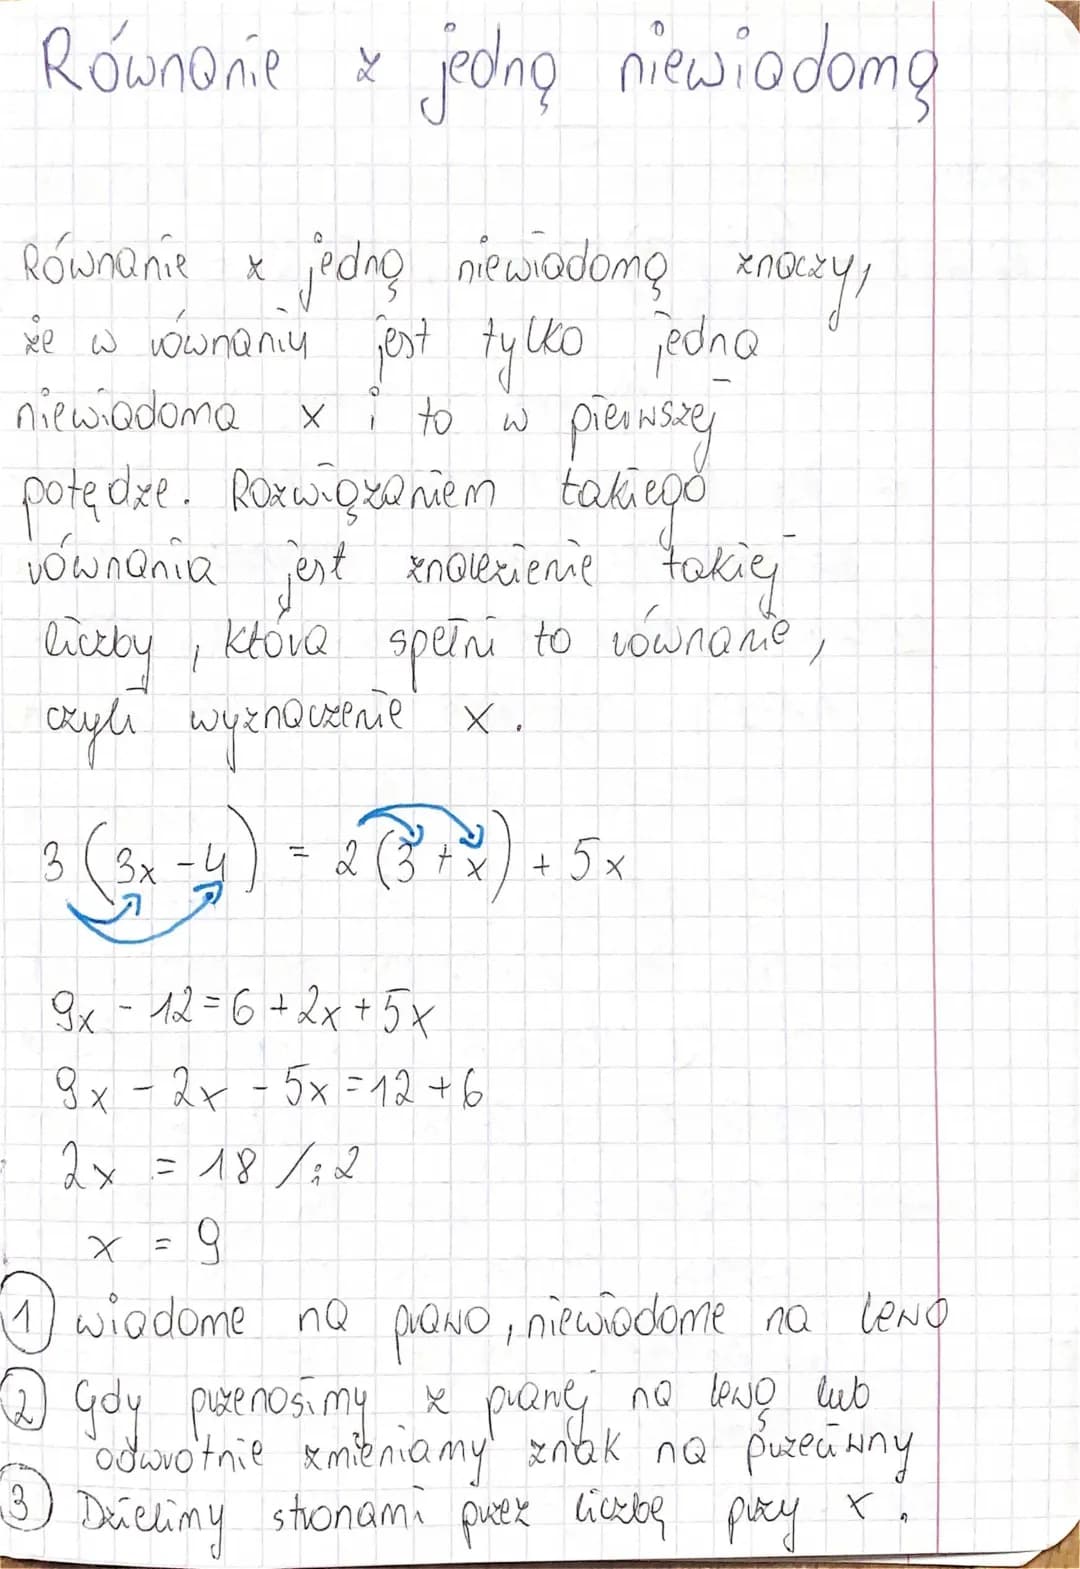 Równanie z jedną niewiadomą
Równanie z jedną niewiadomą znaczy,
że w równaniu jest tylko jedna
niewiadoma x i to w pierwszej
potędze. Rozwiązaniem takiego
równania jest znalezienie takiej
liczby, która spełni to równanie,
czyli wyznaczenie x.
3(3x-4) = 2(3+x) + 5x
9x - 12 = 6 + 2x + 5x
9x - 2x - 5x = 12 + 6
2x = 18 /:2
x = 9
1 wiadome na prawo, niewiadome na lewo
2 Gdy przenosimy z prawej na lewą lub
odwrotnie zmieniamy znak na przeciwny
3 Dzielimy stronami przez liczbę przy x.